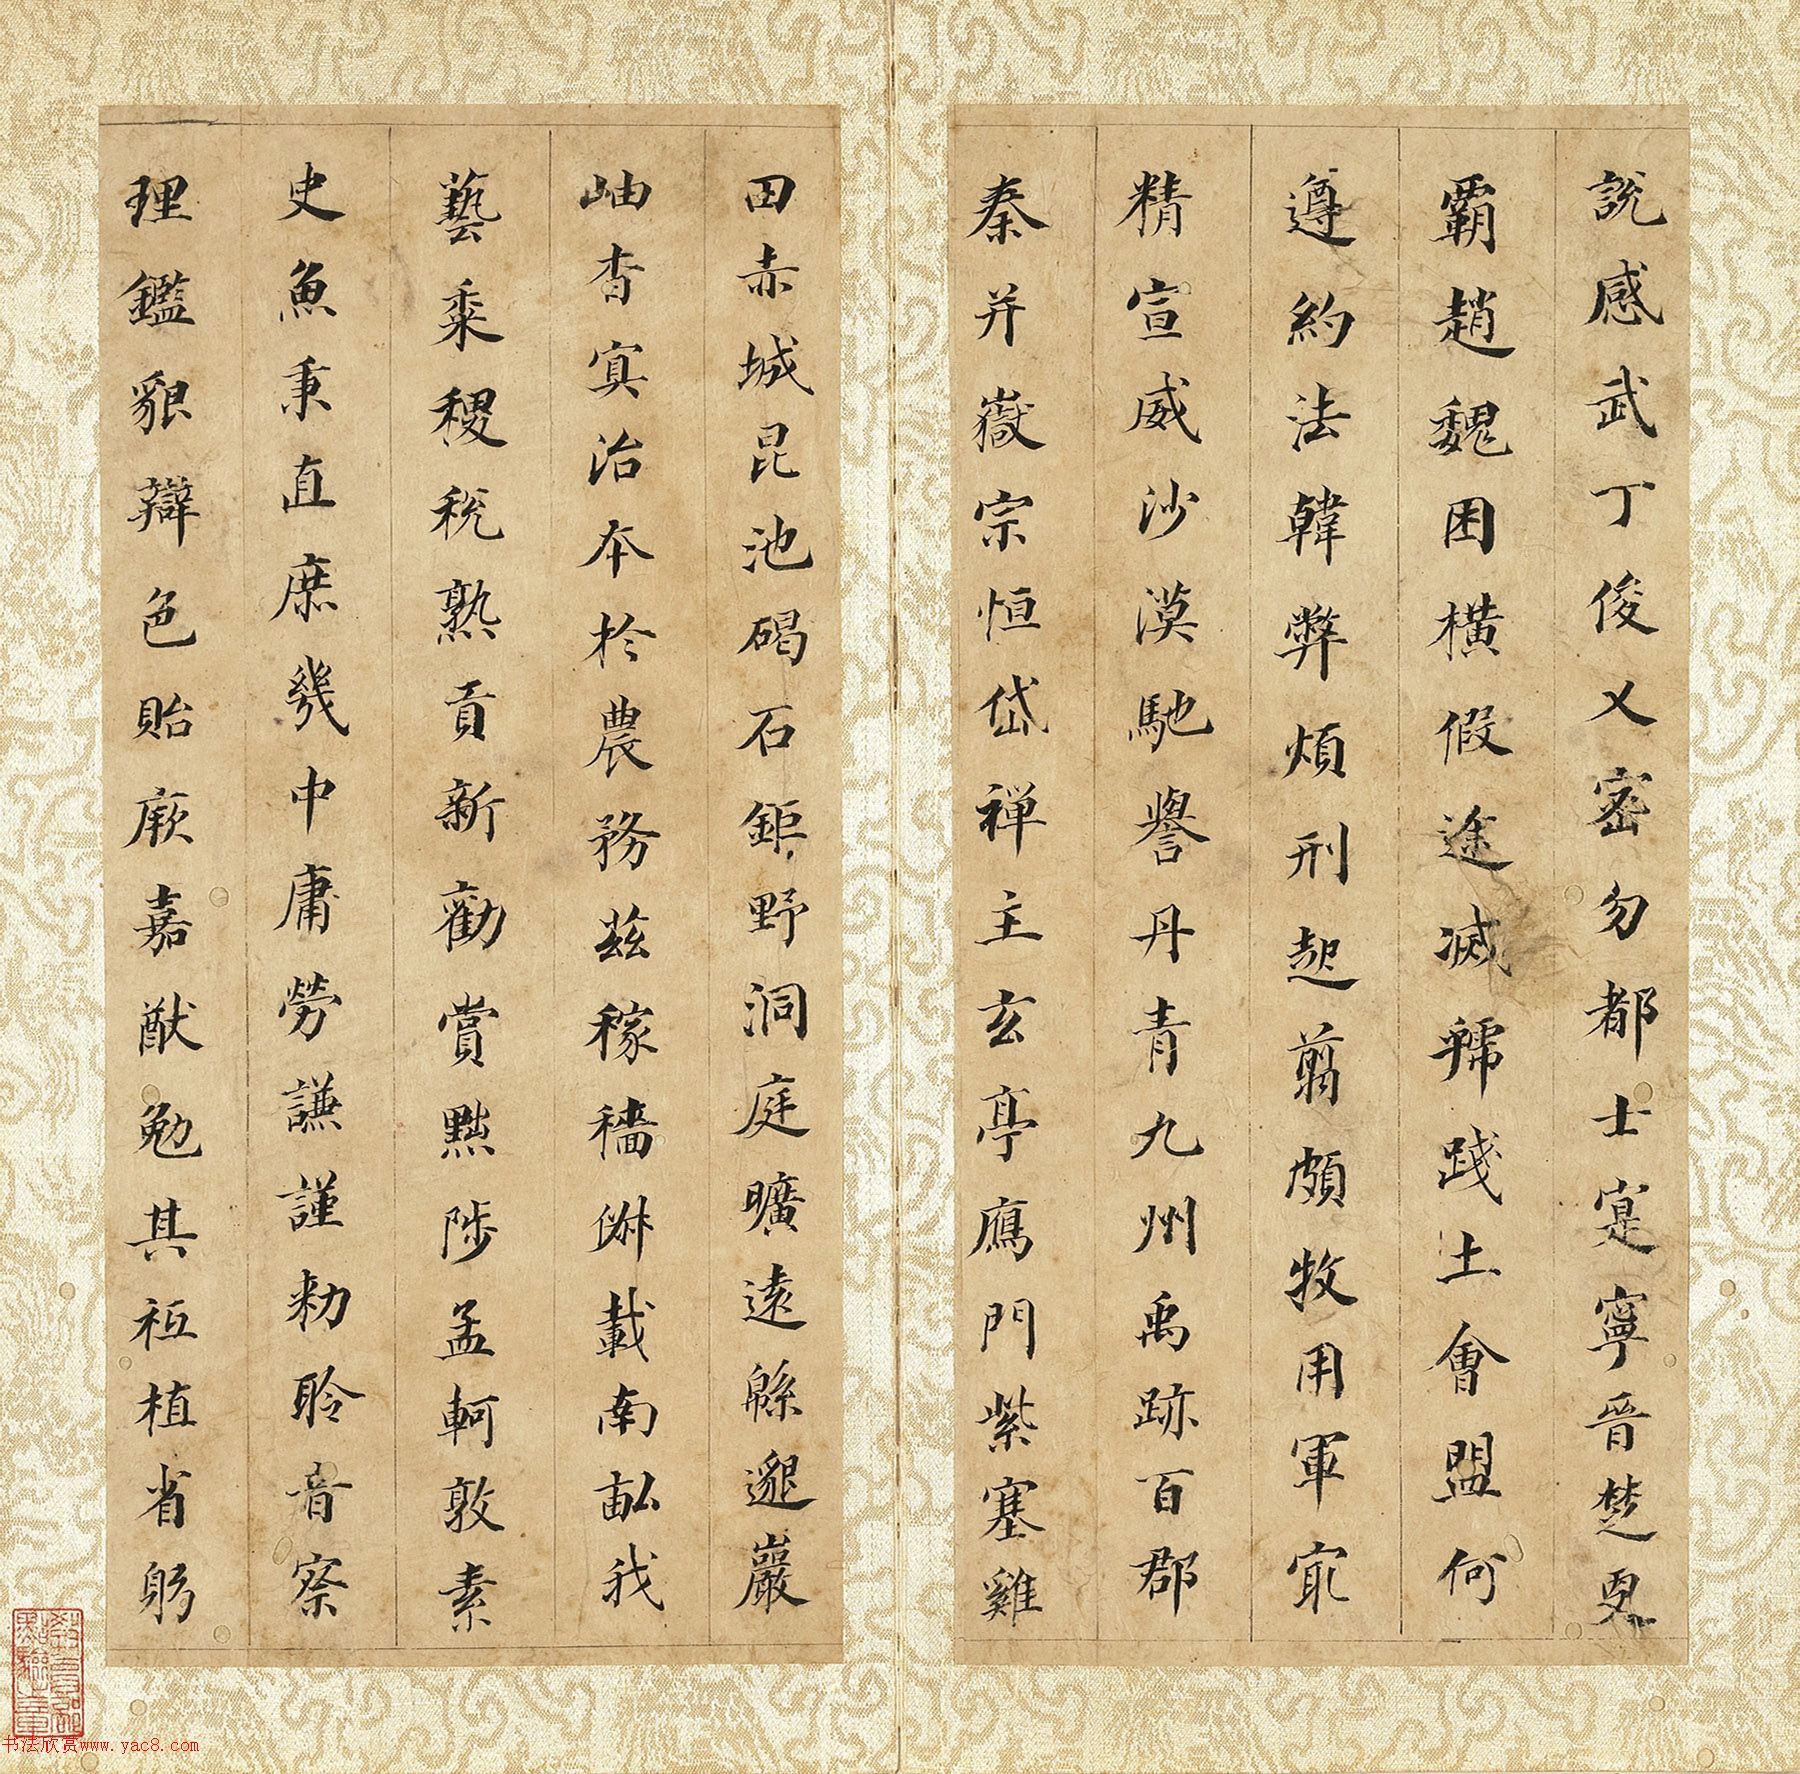 說感武丁俊乂密勿都士寔寧晉楚更
霸趙魏困横假途滅虢踐土會盟何
遵約法韓弊煩刑起翦頗牧用軍冣
精宣威沙漠馳譽丹青九州禹跡百郡
秦并嶽宗恒岱禅主玄亭鴈門紫塞雞
田赤城昆池碣石鉅野洞庭曠遠緜邈巖
岫杳㝠治本於農務茲稼穡俶載南畝我
藝黍稷稅熟貢新勸賞黜陟孟軻敦素
史魚秉直庶幾中庸勞謙謹勑聆音察
理鑑貌辯色貽厥嘉猷勉其祗植省躬
书法欣赏www.yac8.com